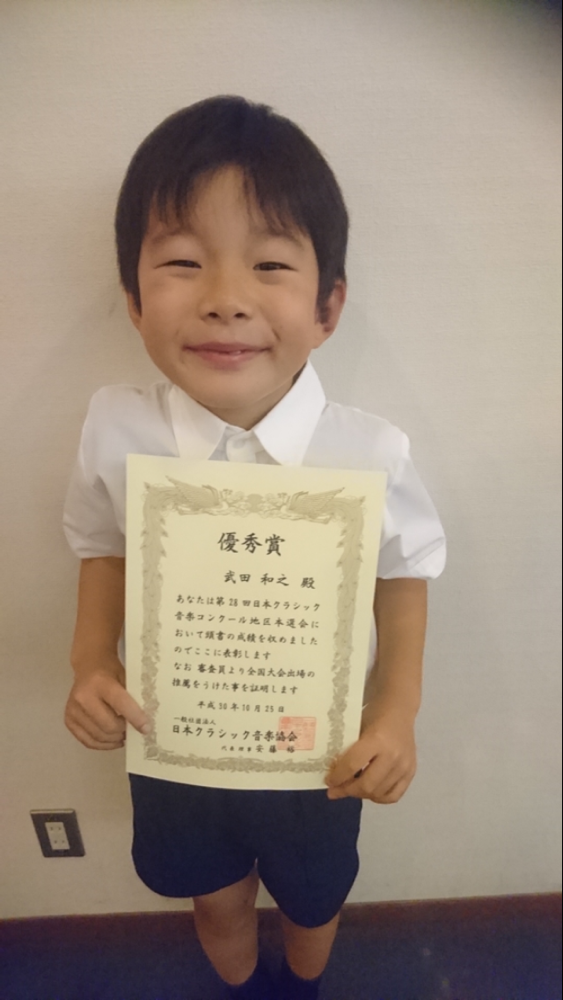 優秀賞
武田 和之 殿
あなたは第28回日本クラシック
音楽コンクール地区本選会に
おいて頭書の成績を収めました
のでここに表彰します
なお 審査員より全国大会出場の
推薦をうけた事を証明します
平成30年10月25日
一般社団法人
日本クラシック音楽協会
代表理事 安藤